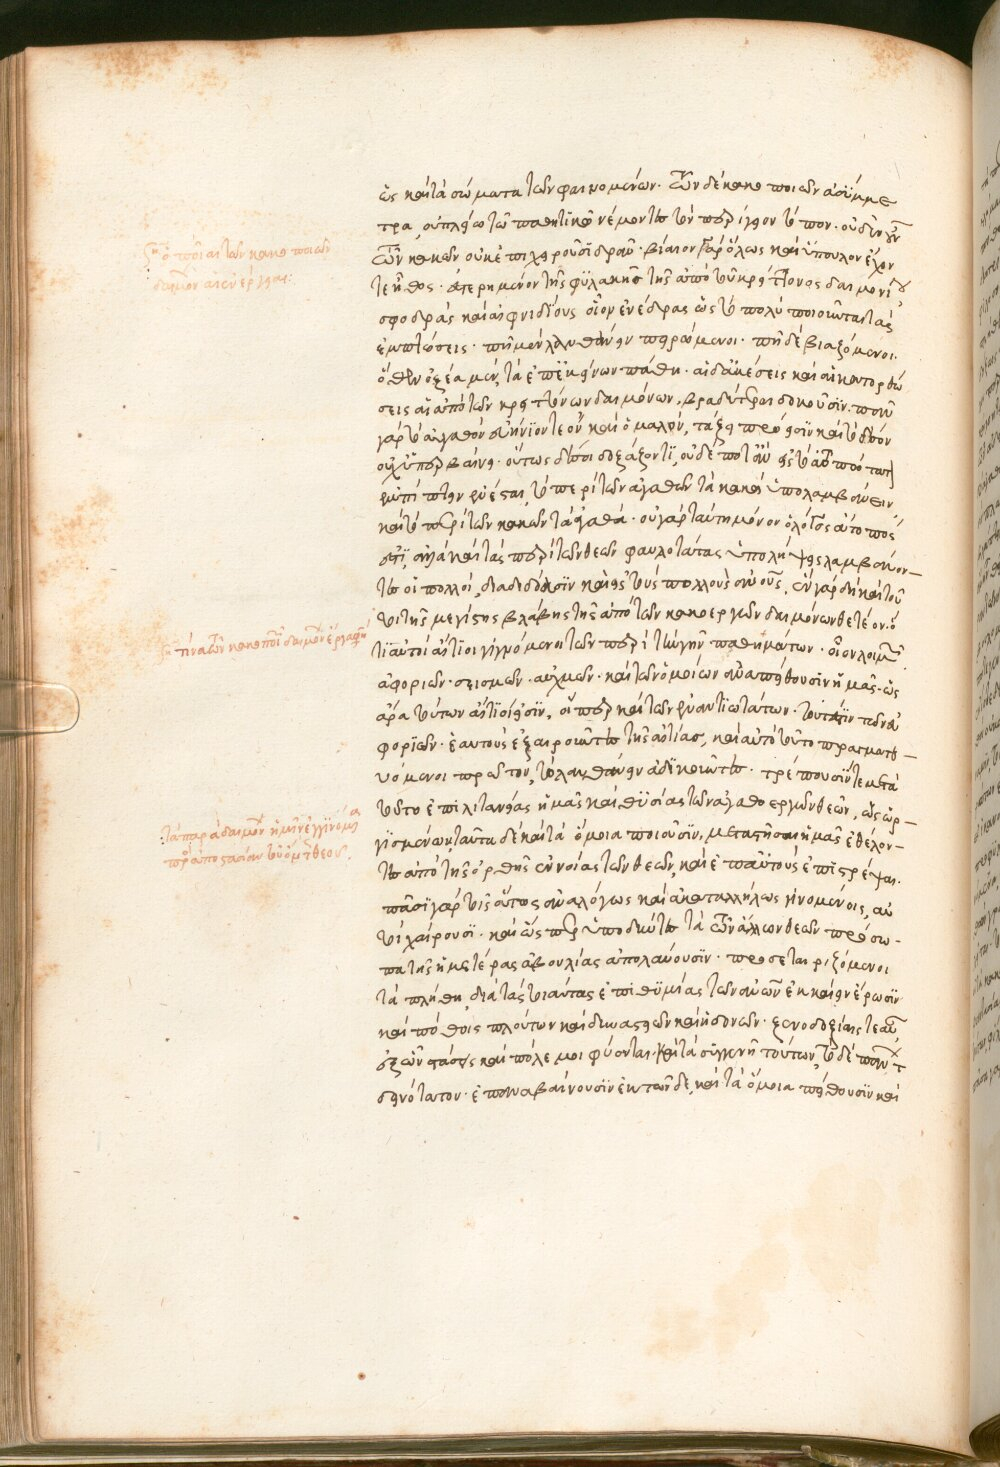 ὡς καὶ τὰ σώματα τῶν φαινομένων· τῶν δὲ κακοποιῶν ἀσύμμε
τρα, οἳ πλέω τῶ παθητικῶ νέμονται τὸν περίγειον τόπον· οὐδὲν γὰρ
τῶν κακῶν οὐκ ἐπιχειροῦσι δρᾶν· βίαιον γὰρ ὅλως καὶ ὕπουλον ἔχον
τες ἦθος· ἐστερημένον τῆς φυλακῆς τῆς ἀπὸ τοῦ κρείττονος δαιμονίου
σφοδρὰς καὶ αἰφνιδίους οἷον ἐνέδρας ὡς τὸ πολὺ ποιοῦνται τὰς
ἐμπτώσεις· πῆ μὲν λανθάνειν πειρώμενοι· πῆ δὲ βιαζόμενοι·
ὅθεν ὀξέα μὲν, τὰ ἐπ' ἐκείνων πάθη· αἱ δ' ἀκέσεις καὶ αἱ κατορθώ
σεις αἱ ἀπὸ τῶν κρειττόνων δαιμόνων, βραδύτεραι δοκοῦσιν· πᾶν
γὰρ τὸ ἀγαθὸν εὐήνιόν τε ὂν καὶ ὁμαλὸν, τάξει πρόεισιν καὶ τὸ δέον
οὐχ ὑπερβαίνει· οὕτως δή σοι δοξάζοντι, οὐδέποτ' ἂν εἰς τὸ ἀτοπώτατον
ἐμπίπτειν ἔσται, τὸ περὶ τῶν ἀγαθῶν τὰ κακὰ ὑπολαμβάνειν,
καὶ τὸ περὶ τῶν κακῶν τἀγαθά· οὐ γὰρ ταύτη μόνον ὁ λόγος ἄτοπός
ἐστι, ἀλλὰ καὶ τὰς περὶ τῶν θεῶν φαυλοτάτας ὑπολήψεις λαμβάνον-
τες οἱ πολλοὶ, διαδιδόασιν καὶ εἰς τοὺς πολλοὺς ἀνους, ἓν γὰρ δὴ καὶ τοῦ
το τῆς μεγίστης βλάβης τῆς ἀπὸ τῶν κακοεργῶν δαιμόνων θετέον· ὅ
τι αὐτοὶ αἴτιοι γιγνόμενοι τῶν περὶ τὴν γῆν παθημάτων· οἷον λοιμῶν
ἀφοριῶν· σεισμῶν· αὐχμῶν· καὶ τῶν ὁμοίων ἀναπείθουσιν ἡμᾶς· ὡς
ἄρα τούτων αἴτιοι εἰσὶν, οἵπερ καὶ τῶν ἐναντιωτάτων· τουτέστιν τῶν εὐ
φοριῶν· ἑαυτοὺς ἐξαιροῦντες τῆς αἰτίας, καὶ αὐτὸ τοῦτο πραγματευ-
όμενοι πρῶτον, τὸ λανθάνειν ἀδικοῦντες· τρέπουσίν τε μετὰ
τοῦτο ἐπὶ λιτανείας ἡμᾶς καὶ θυσίας τῶν ἀγαθοεργῶν θεῶν, ὡς ὠρ-
γισμένων, ταῦτα δὲ καὶ τὰ ὅμοια ποιοῦσιν, μεταστῆσαι ἡμᾶς ἐθέλον-
τες ἀπὸ τῆς ὀρθῆς ἐννοίας τῶν θεῶν, καὶ ἐπ' αὐτοὺς ἐπιστρέψαι·
πᾶσι γὰρ τοῖς οὕτως ἀναλόγως καὶ ἀκαταλλήλως γινομένοις, αὐ
τοὶ χαίρουσι· καὶ ὥσπερ ὑποδύντες τὰ τῶν ἄλλων θεῶν πρόσω-
πα τῆς ἡμετέρας ἀβουλίας ἀπολαύουσιν· προσεταιριζόμενοι
τὰ πλήθη, διὰ τὰς τοιαύτας ἐπιθυμίας τῶν ἀνων ἐκκαίειν ἔρωσιν
καὶ πόθοις πλούτων καὶ δυναστειῶν καὶ ἡδονῶν· κενοδοξίαις τε αὖ,
ἐξ ὧν στάσεις καὶ πόλεμοι φύονται· καὶ τὰ συγγενῆ τούτων, τὸ δὲ πάντων
δεινότατον· ἐπαναβαίνουσιν ἐκ τῶνδε, καὶ τὰ ὅμοια πείθουσιν καὶ
ὁποῖαι τῶν κακοποιῶν
δαιμόνων αἱ ἐνέργειαι:
τίνα τῶν κακοποιῶν δαιμόνων ἔργα
τὰ παρὰ δαιμόνων ἡμῖν ἐγγινόμενα
πρὸς ἀποστασίαν τοῦ θεοῦ.